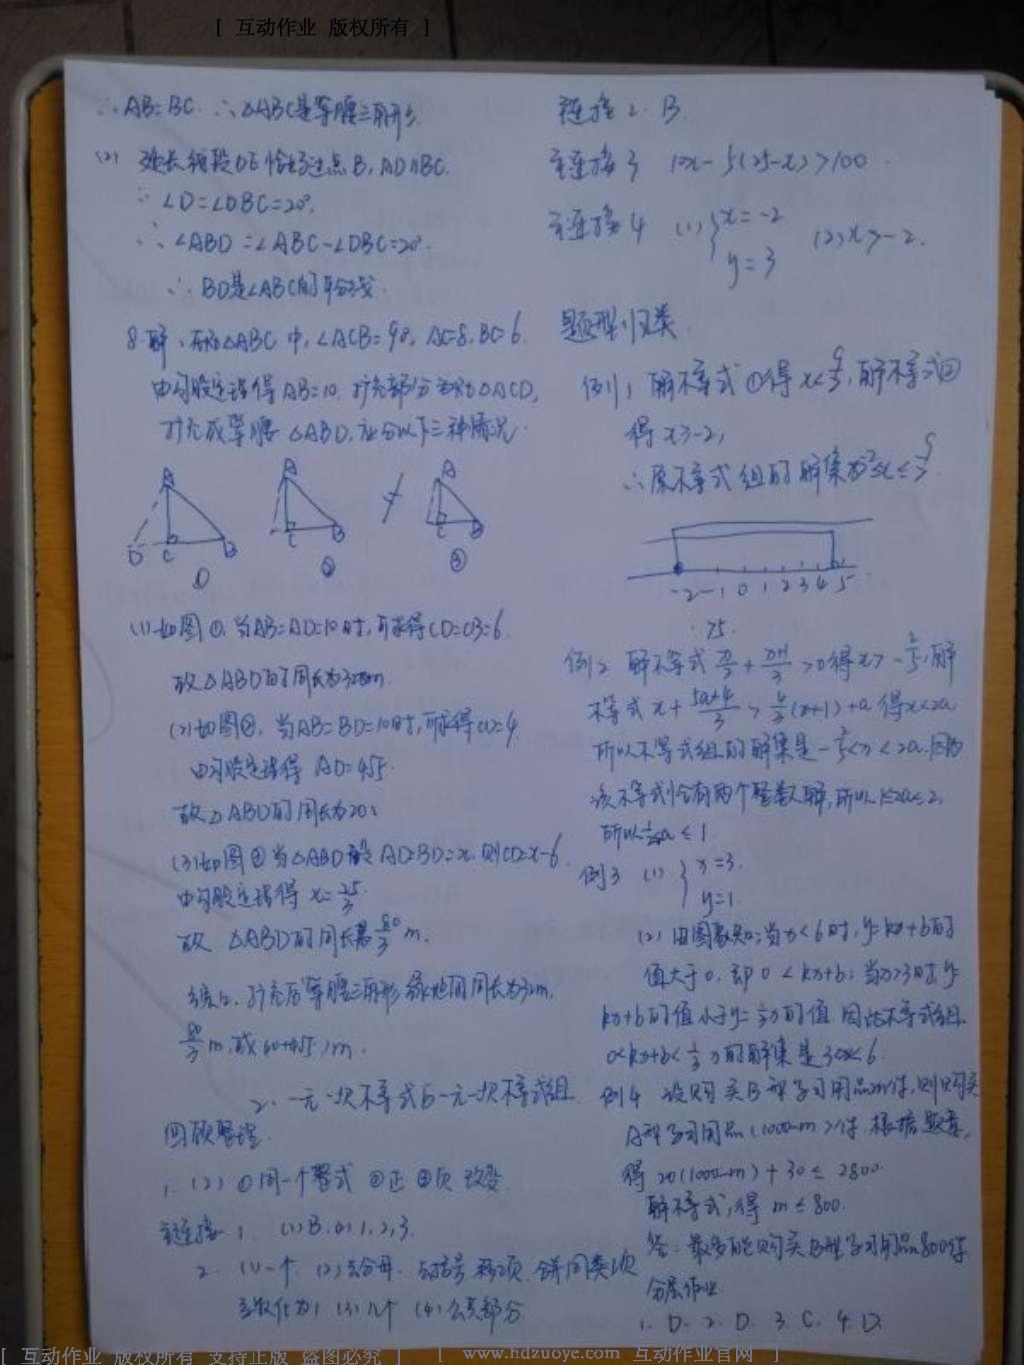 [ 互动作业 版权所有 ]
∴ AB=BC. ∴ △ABC是等腰三角形.
(2) 延长线段DE恰好过点B, AD∥BC.
∵ ∠D=∠DBC=20°.
∴ ∠ABD=∠ABC-∠DBC=20°.
∴ BD是∠ABC的平分线.
8.解:在Rt△ABC中,∠ACB=90°, AC=8, BC=6.
由勾股定理得AB=10. 扩充部分为Rt△ACD,
扩充成等腰△ABD,应分以下三种情况.
A D C B ①
A C B ②
A C B ③
(1)如图①,当AB=AD=10时,可求得CD=CB=6.
故△ABD的周长为32m.
(2)如图②,当AB=BD=10时,可求得CD=4.
由勾股定理得 AD=4√5.
故△ABD的周长为20
(3)如图 当△ABD 设AD=BD=x,则CD=x-6
由勾股定理得 x=25/3.
故△ABD的周长为80/3 m.
综上,扩充后等腰三角形绿地的周长为32m,
80/3 m,或 m.
2.一元一次不等式与一元一次不等式组
回顾整理
1. (2) ①同一个整式 ②正 ③负 改变
链接 1. (1)B. (2)1,2,3.
2. (1)一个 (2)去分母 去括号 移项 合并同类项
系数化为1 (3)几个 (4)公共部分
链接2. B.
链接3 10x-5(25-x)>100.
链接4 (1){x=-2 y=3 (2)x>-2.
题型归类
例1 解不等式①得x< ,解不等式②
得x≥-2,
∴原不等式组的解集为
-2 -1 0 1 2 3 4 5
例2 解不等式 >0得x>-2/5,解
不等式x+(5a+4)/3>4/3(x+1)+a得x<2a
所以不等式组的解集是-2/5<x<2a.因为
该不等式恰有两个整数解,所以1<2a≤2,
所以 <a≤1.
例3 (1){x=3. y=1.
(2)由图象知:当x<6时,y=kx+b的
值大于0,即0<kx+b;当x>3时,y=
kx+b的值小于y=1/3x的值.因此不等式组
0<kx+b<1/3x的解集是3<x<6.
例4 设购买B型学习用品m件,则购买
A型学习用品(1000-m)件.根据题意,
得20(1000-m)+30 ≤2800
解不等式,得 m≤800.
答:最多能购买B型学习用品800件
分层作业
1. D. 2. D. 3. C. 4. D.
[ 互动作业 版权所有 支持正版 盗图必究 ] [ www.hdzuoye.com 互动作业官网 ]